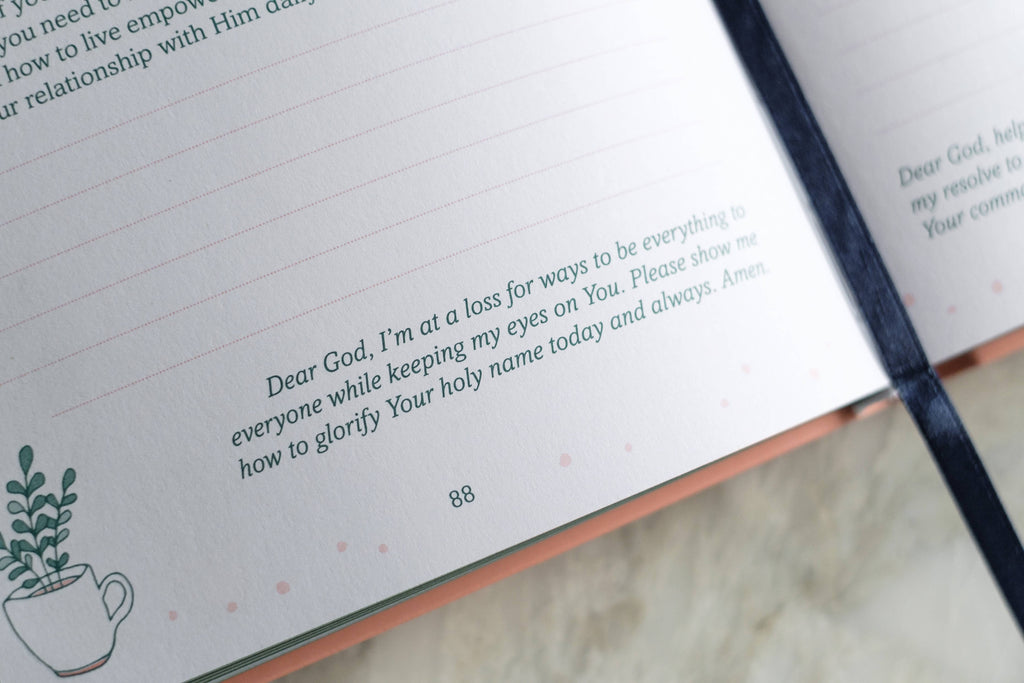 you need to
how to live empowe
ur relationship with Him daily
Dear God, I'm at a loss for ways to be everything to
everyone while keeping my eyes on You. Please show me
how to glorify Your holy name today and always. Amen.
88
Dear God, help
my resolve to
Your comm